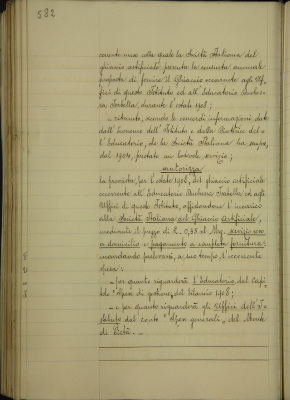 582
corrente anno colla quale la Società Italiana del
ghiaccio artificiale presenta la consueta annuale
proposta di fornire il Ghiaccio occorrente agli Uf-
fici di questo Istituto ed all'Educatorio
Isabella, durante l'estate 1908;
ritenuto, secondo le concordi informazioni date
dall'Economo dell'Istituto e dalla Direttrice del-
l'Educatorio, che la Società Italiana ha sempre,
dal 1904, prestato un lodevole servizio;
autorizza
la provvista, per l'estate 1908, del ghiaccio artificiale
occorrente all'Educatorio Isabella ed agli
Uffici di questo Istituto, affidandone l'incarico
alla Società Italiana del Ghiaccio Artificiale,
mediante il prezzo di L. 0,35 al Mg. servizio reso
a domicilio e pagamento a completa fornitura;
mandando prelevarsi, a suo tempo, l'occorrente
spesa:
per quanto riguarderà l'Educatorio dal Capi-
tolo "Spese di gestione" del bilancio 1908;
e per quanto riguarderà gli Uffici dell'I-
stituto dal conto "Spese generali" del Monte
di Pietà.